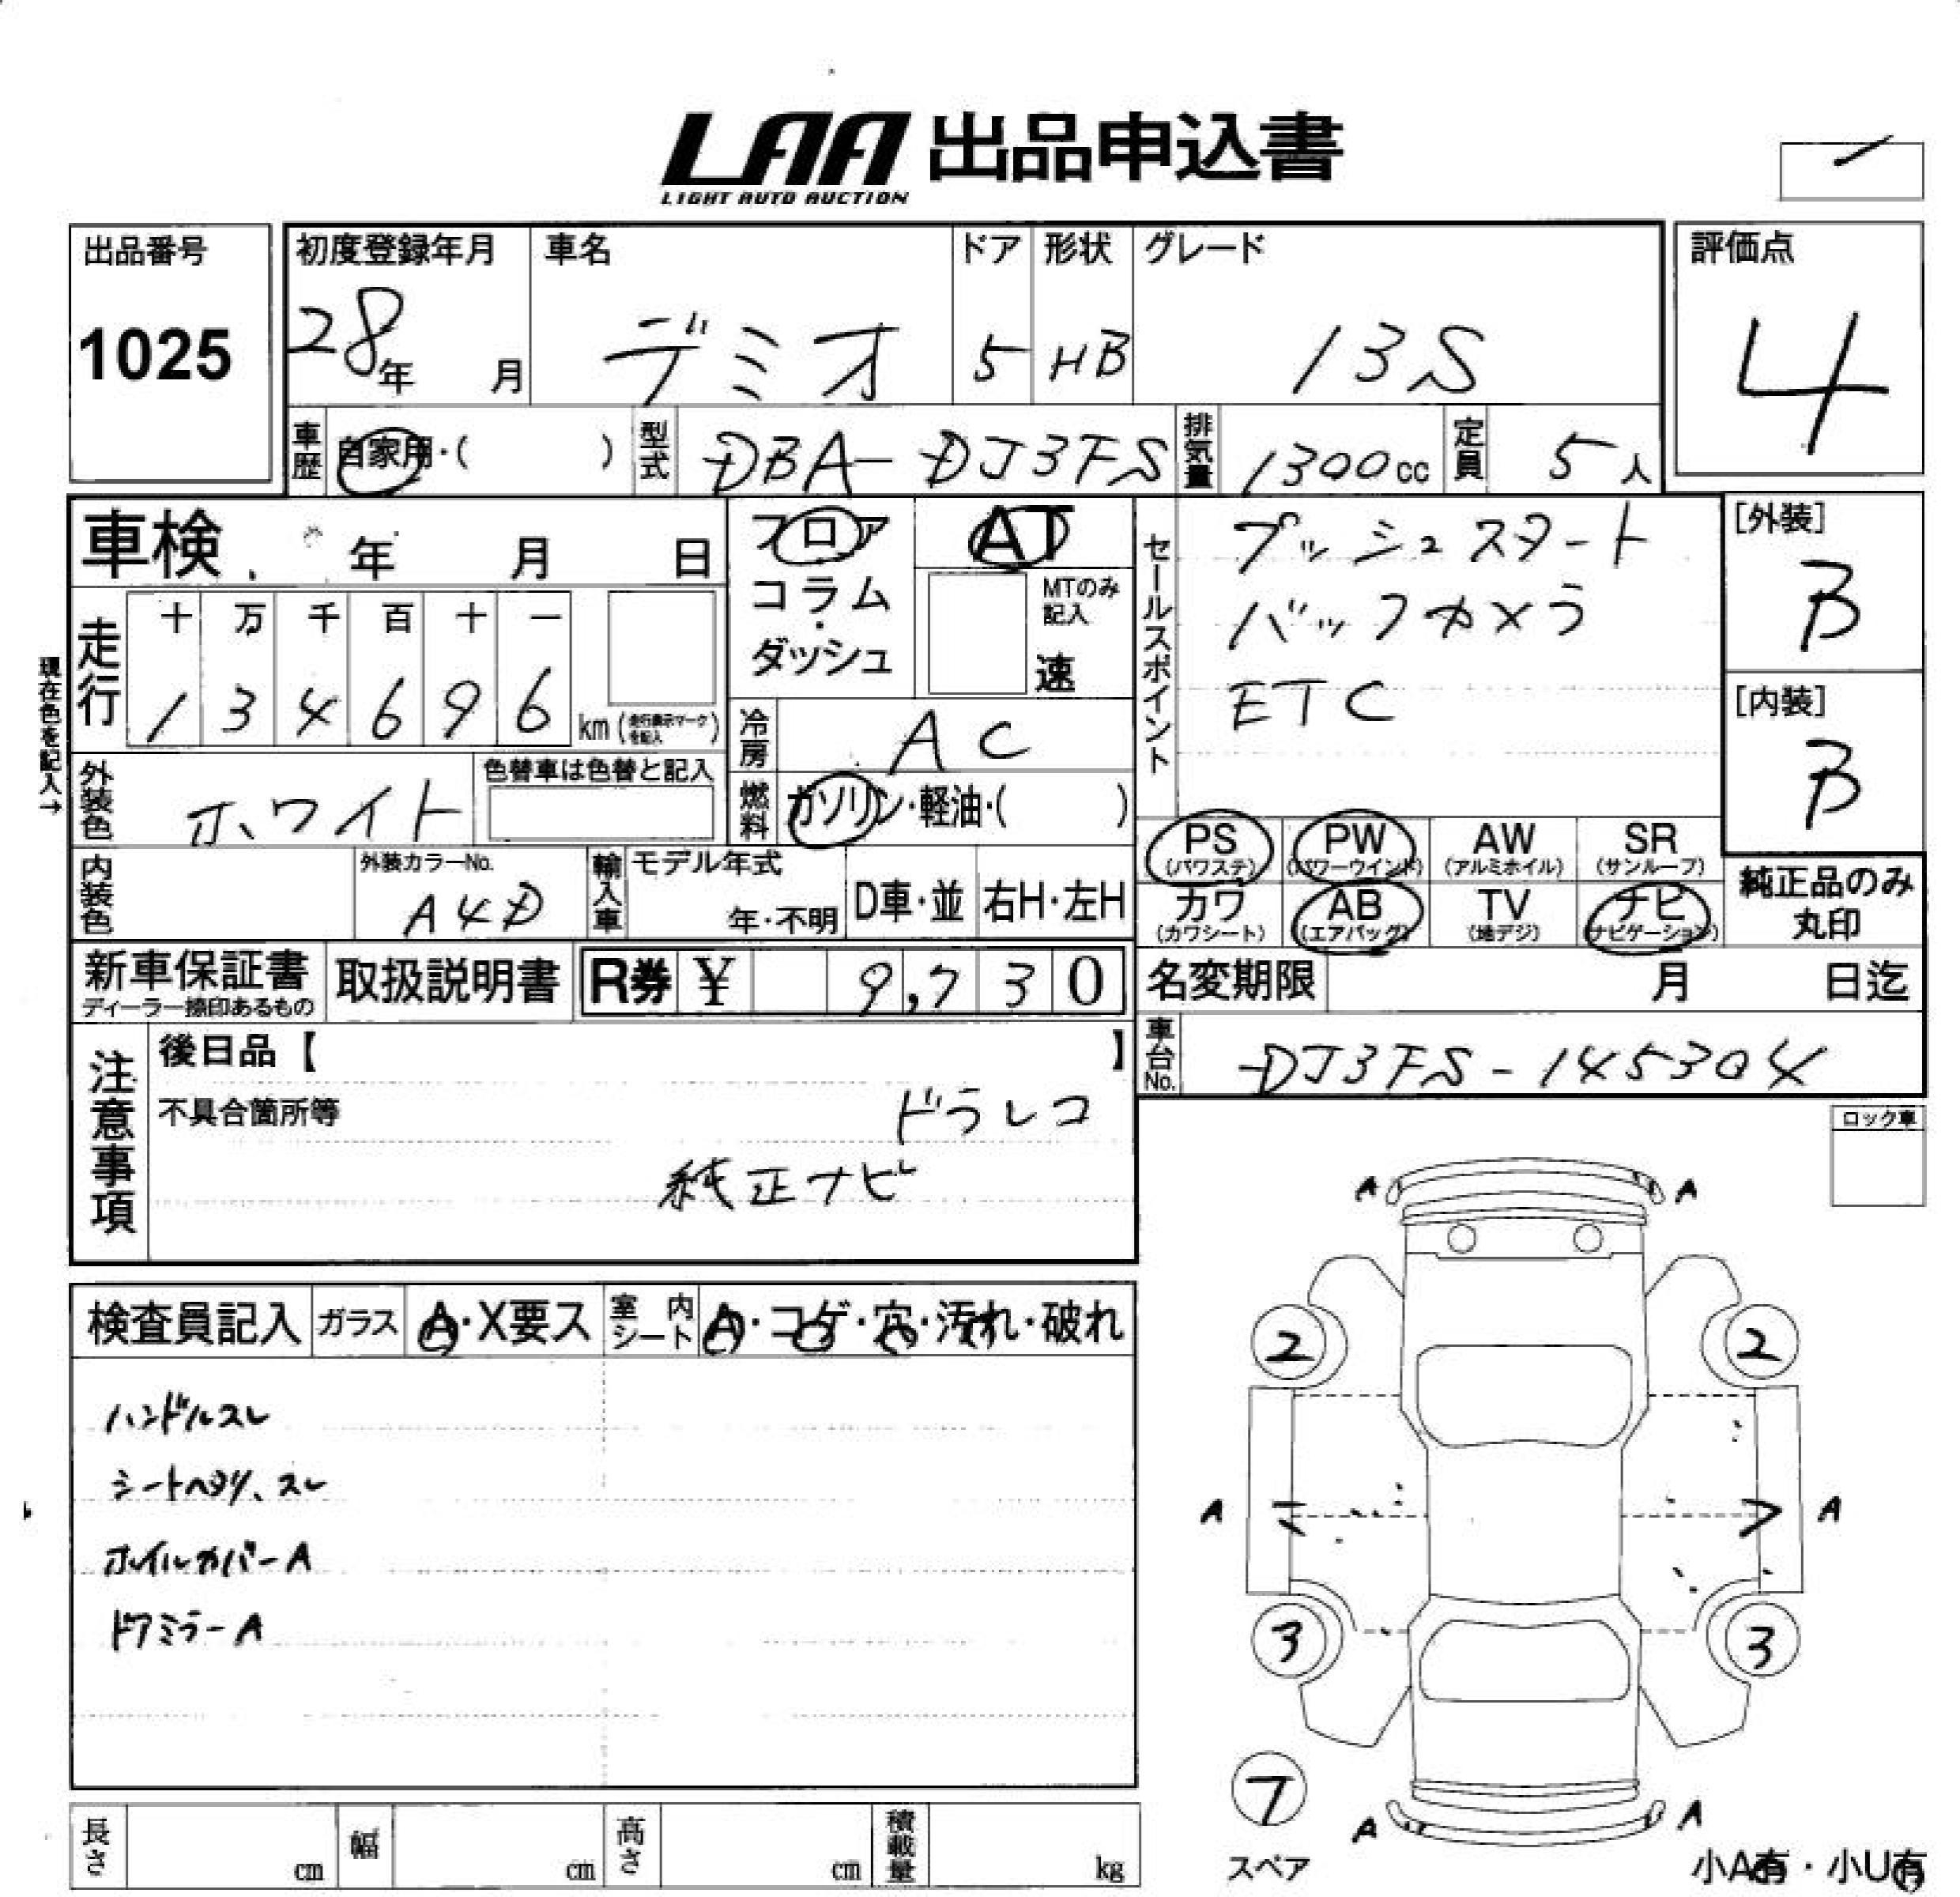 LAA 出品申込書
LIGHT AUTO AUCTION
出品番号
1025
初度登録年月
28年 月
車名
デミオ
ドア
5
形状
HB
グレード
13S
評価点
4
車歴 自家用・( )
型式 DBA-DJ3FS
排気量 1300cc
定員 5人
車検 年 月 日
フロア
コラム
・
ダッシュ
AT
MTのみ
記入
速
セールスポイント
プッシュスタート
バックカメラ
ETC
[外装]
B
[内装]
B
現在色を記入→
走行
十 万 千 百 十 一
1 3 4 6 9 6
km (走行表示マークを記入)
冷房 AC
外装色 ホワイト
色替車は色替と記入
燃料 ガソリン・軽油・( )
PS (パワステ)
PW (パワーウインド)
AW (アルミホイル)
SR (サンルーフ)
カワ (カワシート)
AB (エアバッグ)
TV (地デジ)
ナビ (ナビゲーション)
純正品のみ
丸印
内装色
外装カラーNo.
A4D
輸入車
モデル年式
年・不明
D車・並
右H・左H
新車保証書
ディーラー捺印あるもの
取扱説明書
R券 ¥ 9,730
名変期限 月 日迄
車台No. DJ3FS-145304
注意事項
後日品【 】
不具合箇所等
ドラレコ
純正ナビ
ロック車
検査員記入
ガラス A・X要ス
室内シート A・コゲ・穴・汚れ・破れ
ハンドルスレ
シートヘタリ、スレ
ホイルカバーA
ドアミラーA
A A
2 2
A A
3 3
7
スペア
A A
小A有・小U有
長さ cm
幅 cm
高さ cm
積載量 kg